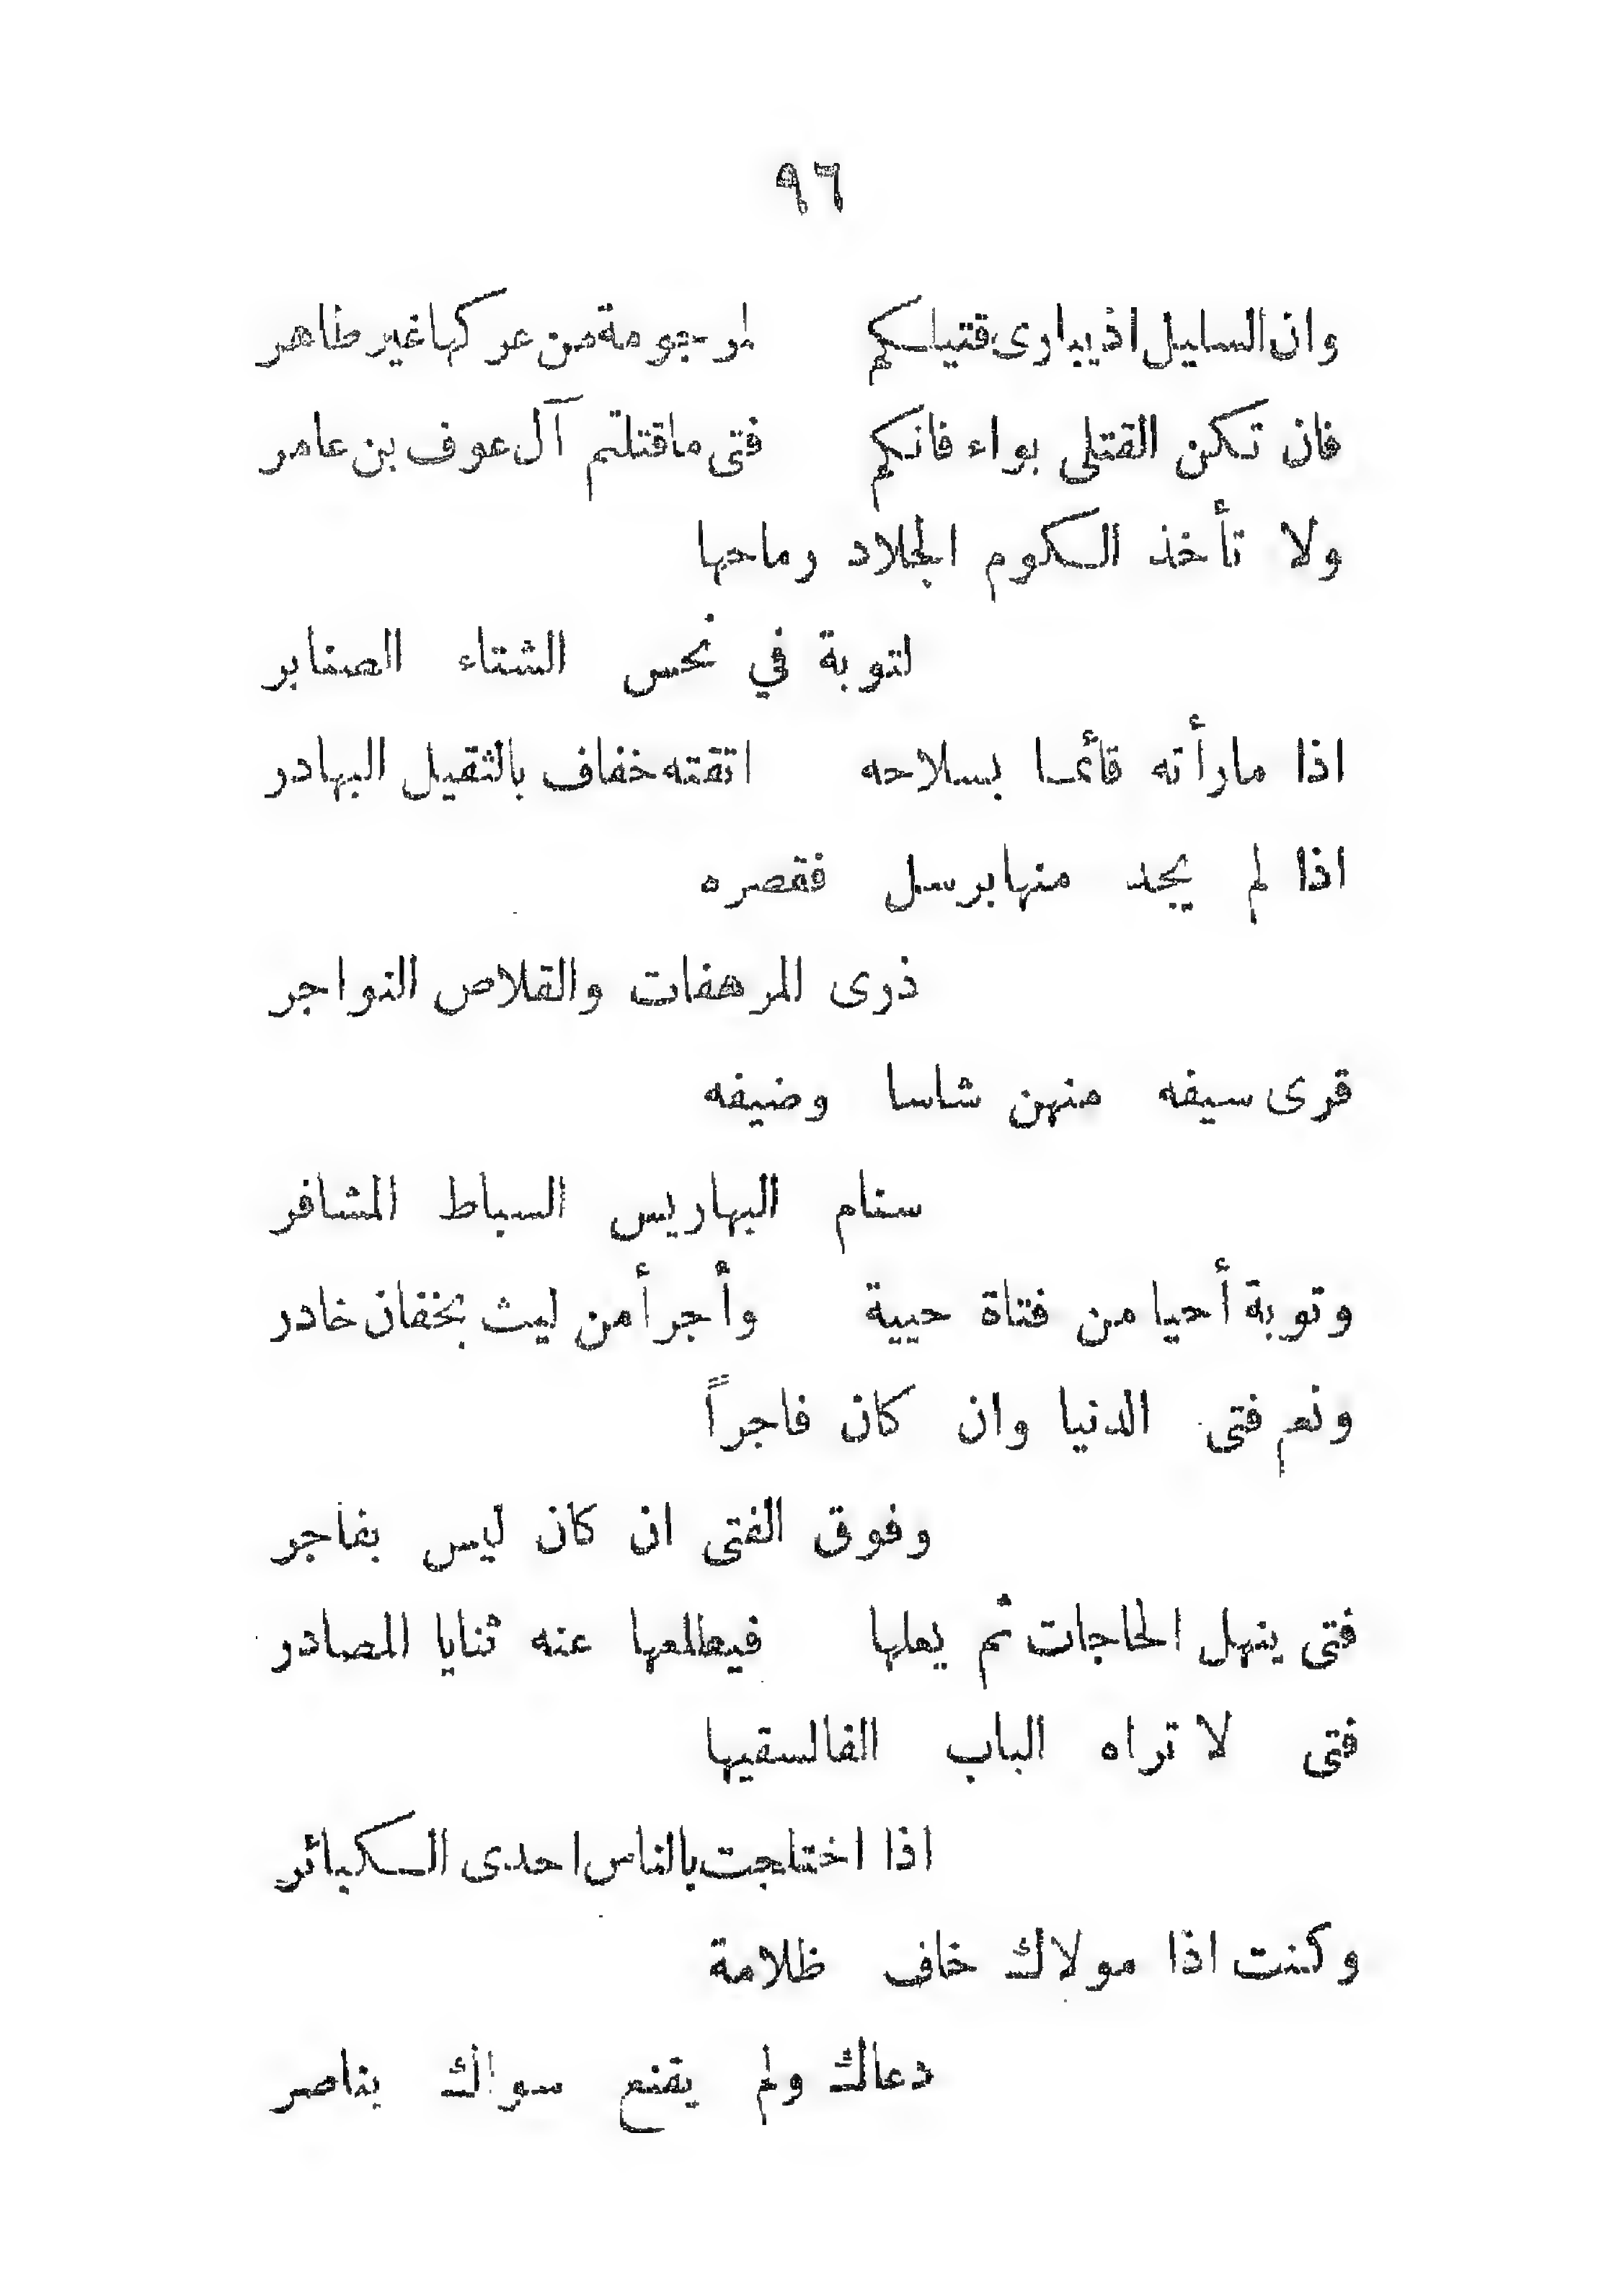 ٩٦
وان السليل اذ يبارى قتيلكم لمرجومة من عركها غير طاهر
فان تكن القتلى بواء فانكم فتى ما قتلتم آل عوف بن عامر
ولا تأخذ الكوم الجلاد رماحها
لتوبة في نحس الشتاء الصنابر
اذا ما رأته قائما بسلاحه اتقته خفاف بالثقيل البهادر
اذا لم يجد منها برسل فقصره
ذرى المرهفات والقلاص النواجر
قرى سيفه منهن شاسا وضيفه
سنام البهاريس السباط المشافر
وتوبة أحيا من فتاة حيية وأجرأ من ليث بخفان خادر
ونعم فتى الدنيا وان كان فاجراً
وفوق الفتى ان كان ليس بفاجر
فتى ينهل الحاجات ثم يعلها فيطلعها عنه ثنايا المصادر
فتى لا تراه الباب الفالسقيها
اذا اختلجت بالناس احدى الكبائر
وكنت اذا مولاك خاف ظلامة
دعاك ولم يقنع سواك بناصر